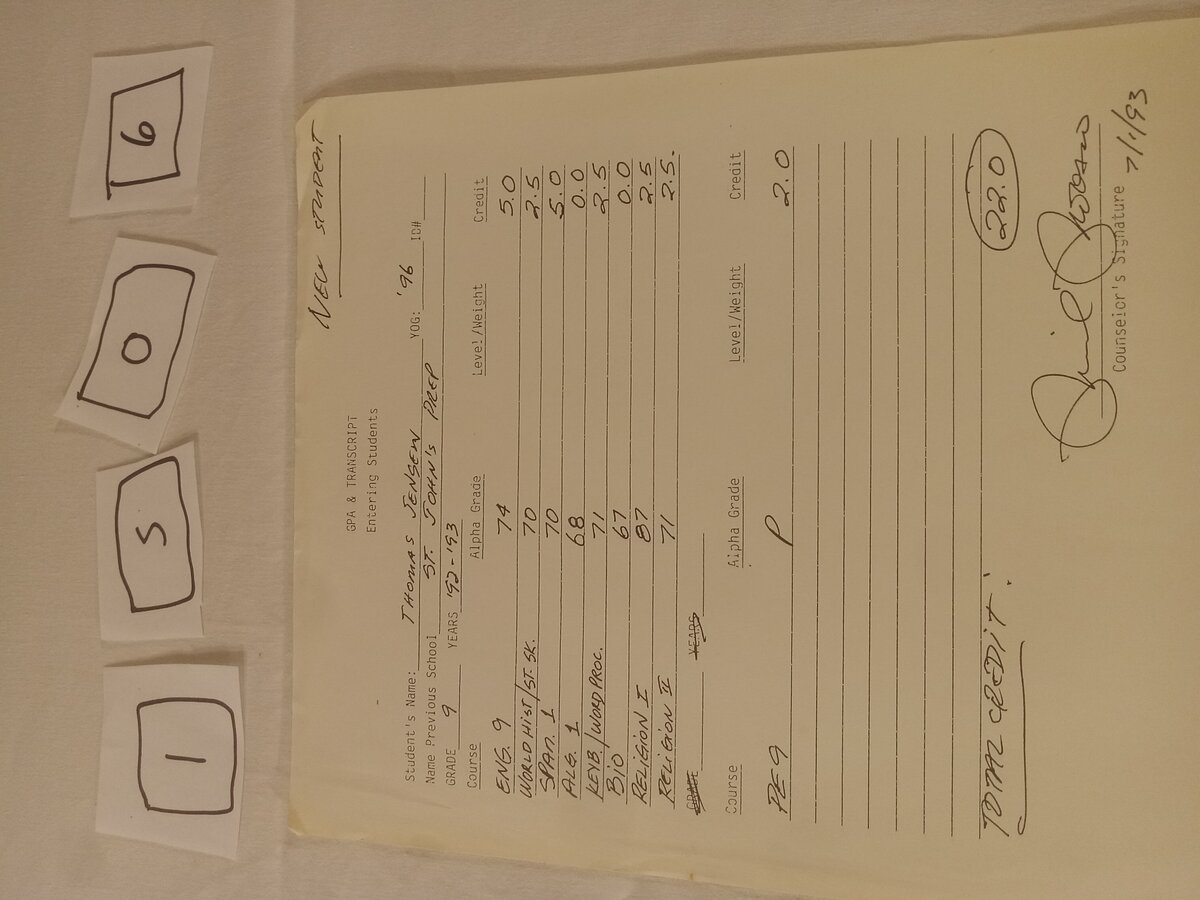 1 5 0 6
NEW STUDENT
GPA & TRANSCRIPT
Entering Students
Student's Name: THOMAS JENSEN YOG: '96 ID#
Name Previous School ST. JOHN'S PREP
GRADE 9 YEARS '92-'93
Course Alpha Grade Level/Weight Credit
ENG. 9 74 5.0
WORLD HIST/ST. SK. 70 2.5
SPAN. 1 70 5.0
ALG. 1 68 0.0
KEYB./WORD PROC. 71 2.5
BIO 67 0.0
RELIGION I 87 2.5
RELIGION II 71 2.5.
GRADE YEARS
Course Alpha Grade Level/Weight Credit
PE 9 P 2.0
TOTAL CREDIT: 22.0
Counselor's Signature 7/1/93